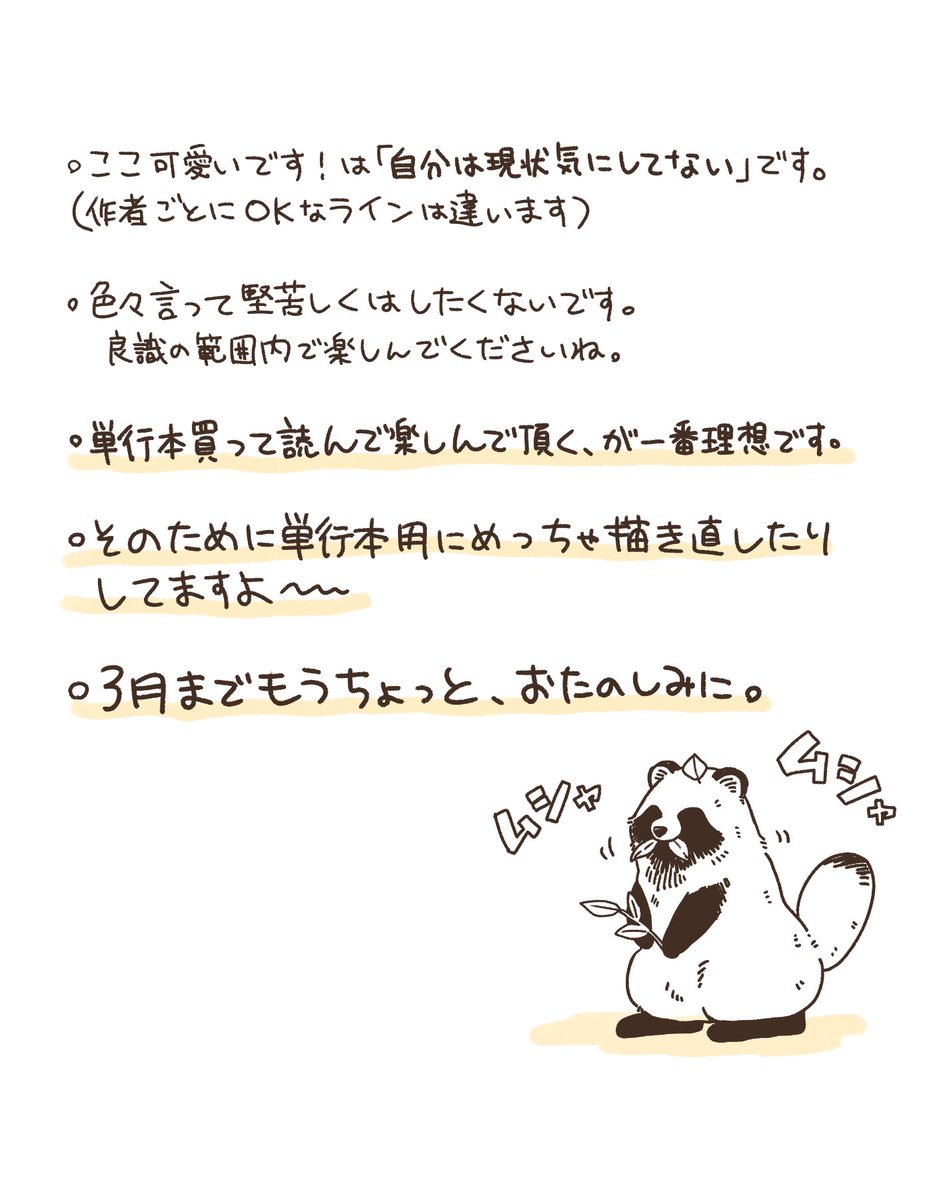 ○ここ可愛いです！は「自分は現状気にしてない」です。
(作者ごとにOKなラインは違います)
○色々言って堅苦しくはしたくないです。
良識の範囲内で楽しんでくださいね。
○単行本買って読んで楽しんで頂く、が一番理想です。
○そのために単行本用にめっちゃ描き直したり
してますよ〜〜
○3月までもうちょっと、おたのしみに。
ムシャ
ムシャ